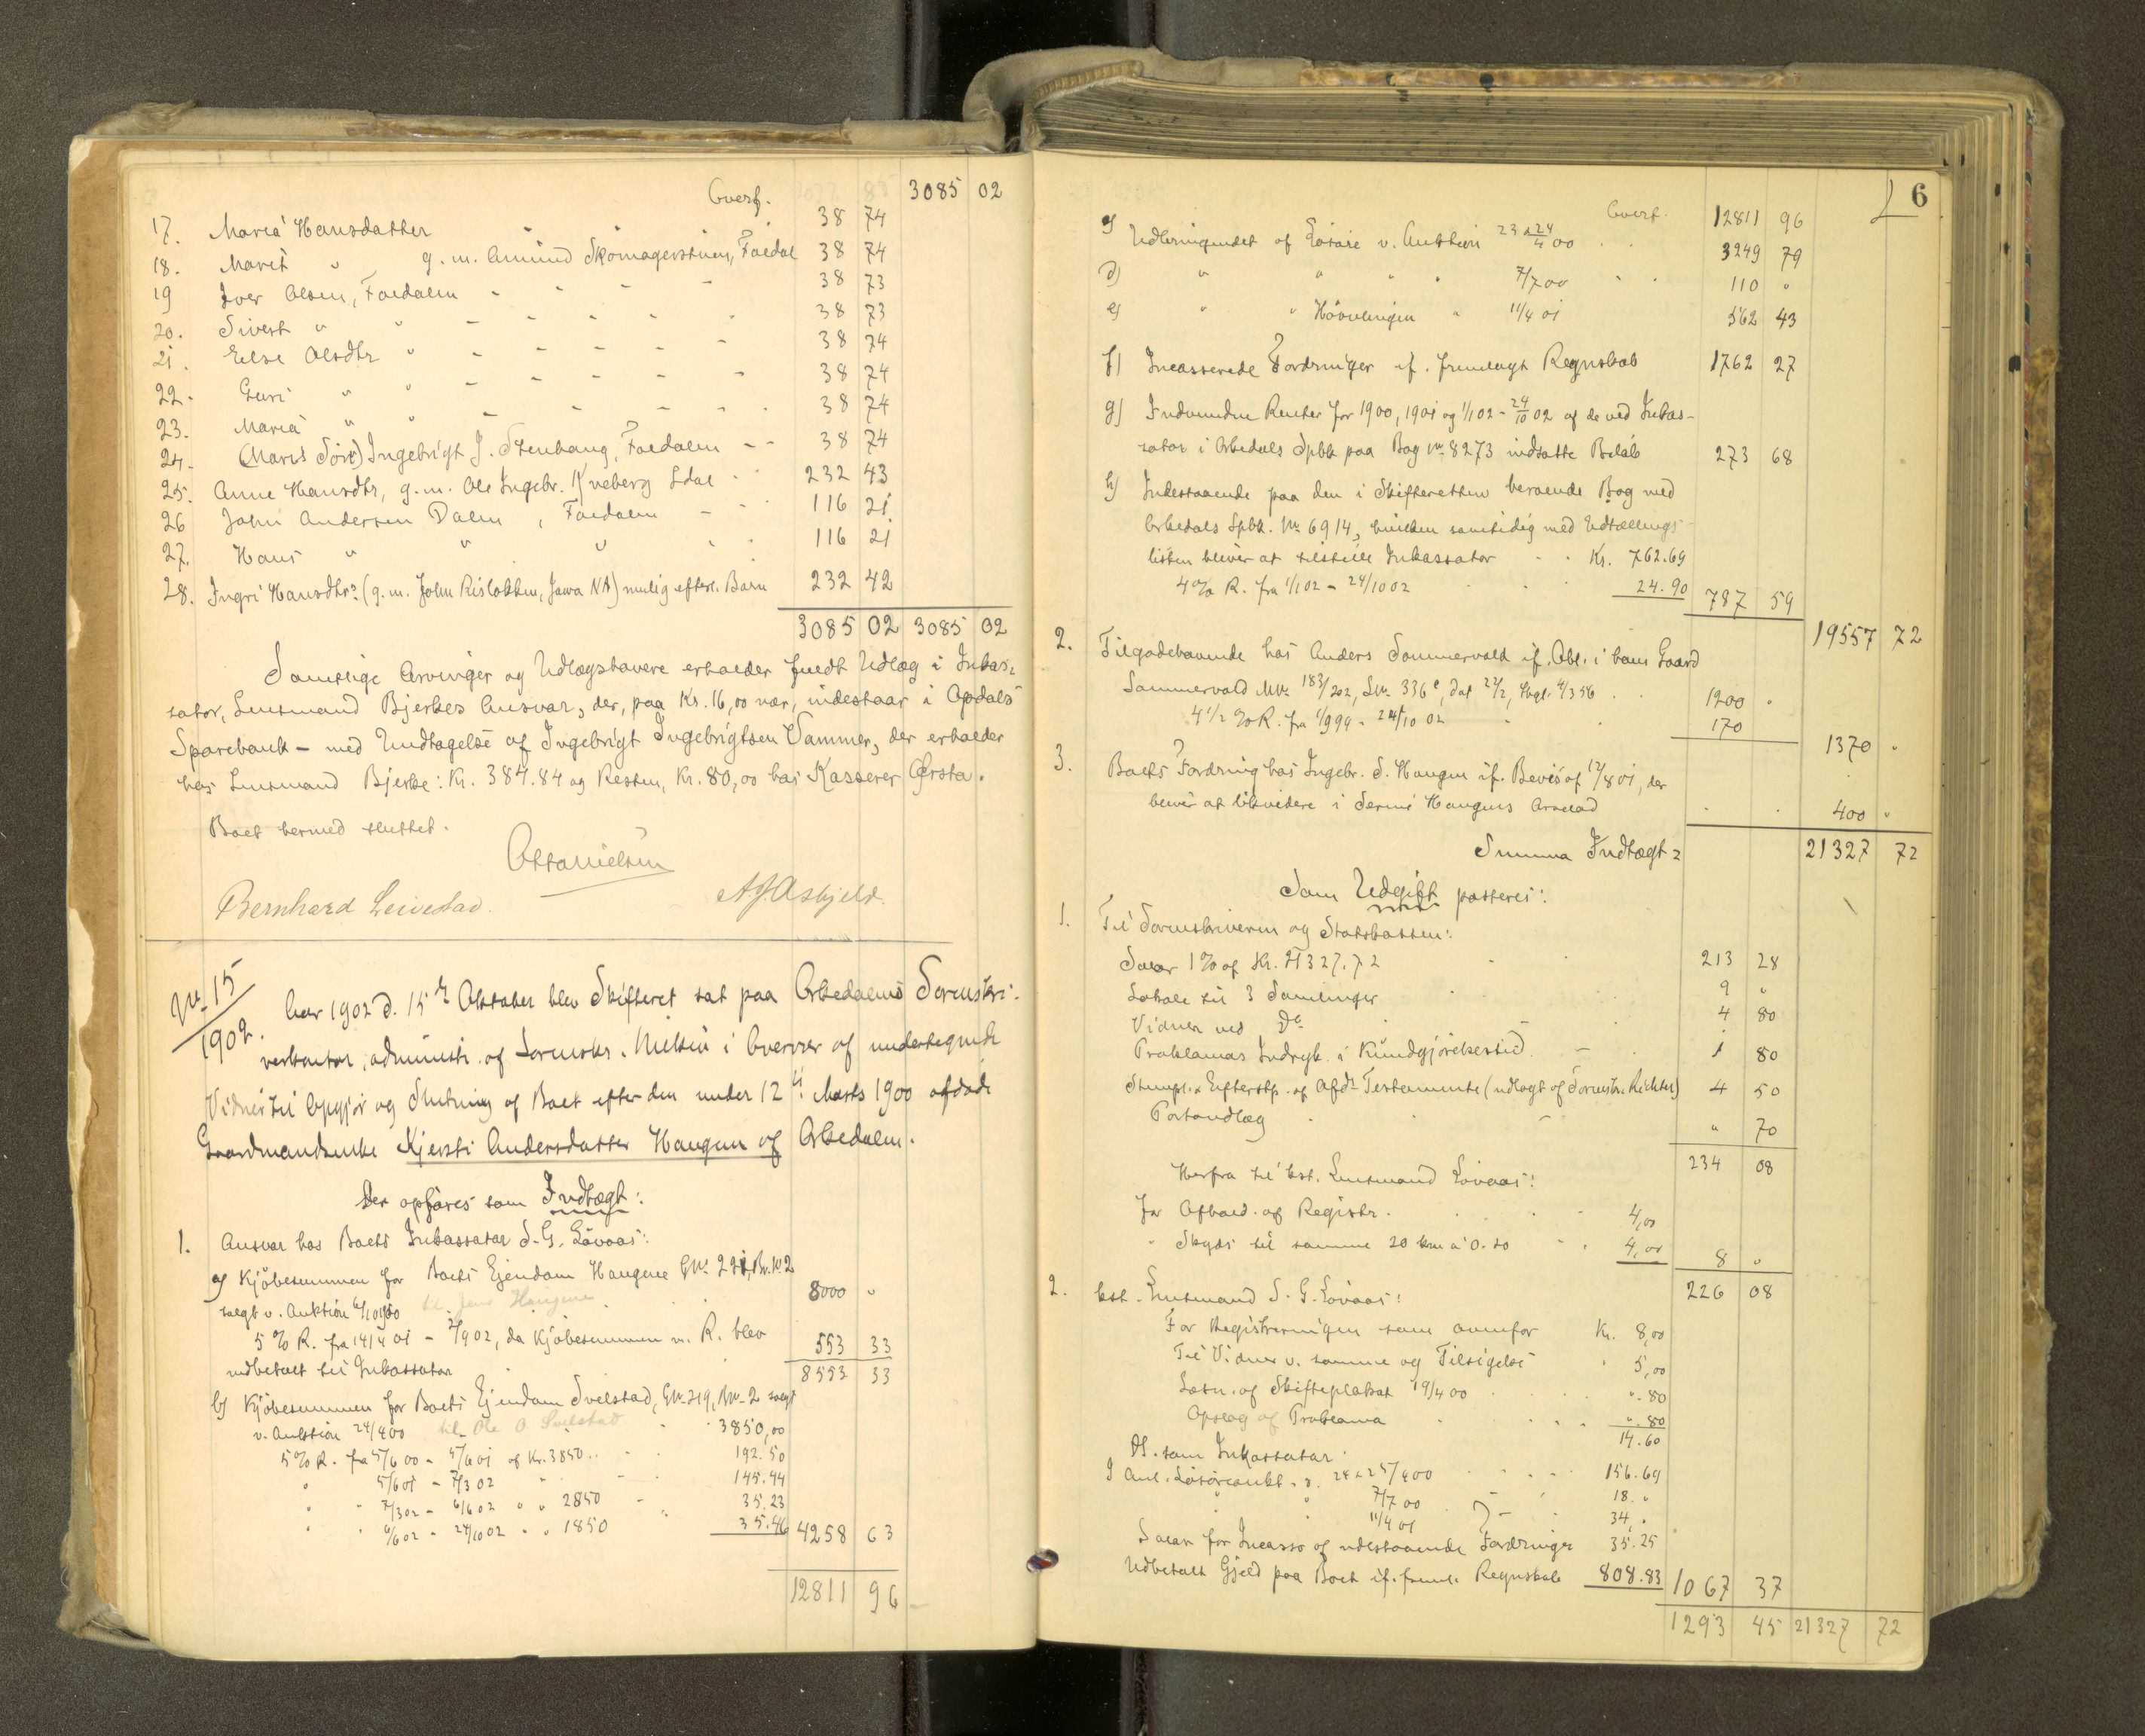 Overf. 3085 02
17. Maria Hansdatter 38 74
18. Marit " g. m. Amund Skomagerstuen, Foedal 38 74
19 Iver Olsen, Foedalen 38 73
20. Sivert " " 38 73
21. Else Olsdtr " 38 74
22. Guri " " 38 74
23. Maria " " 38 74
24. (Maris Søn) Ingebrigt J. Stenhaug, Foedalen 38 74
25. Anne Hansdtr, g. m. Ole Ingebr. Kveberg Sdal 232 43
26 John Andersen Dalen, Foedalen 116 21
27. Hans " " " 116 21
28. Ingri Hansdtr (g. m. John Risløkken, Jowa NA) mulig efterl. Barn 232 42
3085 02 3085 02
Samtlige Arvinger og Udlægshavere erholder suedt Udlæg i Inkas-
sator, Lensmand Bjerkes Ansvar, der, paa Kr. 16,00 nær, indestaar i Opdals
Sparebank – med Undtagelse af Ingebrigt Ingebrigtsen Vammer, der erholder
hos Lensmand Bjerke: Kr. 384.84 og Resten, Kr. 80,00 hos Kasserer Ørsta.
Boet hermed sluttet.
Otto Nielsen
Bernhard Leivestad. A J Asbjeld.
Nr. 15
1902. Aar 1902 d. 15de Oktober blev Skifteret sat paa Orkedalens Sorenskri-
verkontor, administr. af Sorenskr. Nielsen i Overvær af undertegnede
Vidner til Opgjør og Slutning af Boet efter den under 12te Marts 1900 afdøde
Gaardmandsenke Kjersti Andersdatter Haugen af Orkedalen.
Der opføres som Indtægt:
1. Ansvar hos Boets Inkassator S. G. Løvaas:
a) Kjøbesummen for Boets Ejendom Haugene GNr. 221, Br. N. 2
solgt v. Auktion til Jens Haugene 8000 "
5 % R. fra 14/4 01 - 2/9 02, da Kjøbesummen m. R. blev
indbetalt til Inkassator 553 33
8553 33
b) Kjøbesummen for Boets Ejendom Svelstad, GNr. 219, BNr. 2 solgt
v. Auktion 24/4 00 til Ole O Svelstad 3850,00
5 % R. fra 5/6 00 - 5/6 01 af Kr. 3850 192.50
" 5/6 01 - 7/3 02 " 145.44
" " 7/3 02 - 6/6 02 " " 2850 35.23
" " 6/6 02 - 24/10 02 " " 1850 35.46 4258 63
12811 96
6
Overf. 12811 96
c) Udbringendet af Løsøre v. Auktion 23 & 24/4 00 3249 79
d) " " " " 7/7 00 110 "
e) " " Høavlingen " 11/4 01 562 43
f) Incasserede Fordringer if. fremlagt Regnskab 1762 27
g) Indvundne Renter for 1900, 1901 og 1/1 02 - 24/10 02 af de ved Inkas-
sator i Orkedals Spbk paa Bog Nr. 8273 indsatte Beløb 273 68
h) Indestaaende paa den i Skifteretten beroende Bog med
Orkedals Spbk. Nr. 6914, hvilken samtidig med Udtællings-
listen bliver at tilstille Inkassator Kr. 762.69
4 % R. fra 1/1 02 - 24/10 02 24.90 787 59
19557 72
2. Tilgodehavende hos Anders Sommervold if. Obl. i hans Gaard
Sommervold MNr. 183/202, LNr. 336 c, dat 22/2, thgl. 4/3 56 1200 "
4 1/2 % R. fra 1/9 99 - 24/10 02 170
1370 "
3. Boets Fordring hos Ingebr. S. Haugen if. Bevis af 12/8 01, der
bliver at likvidere i denne Haugens Arvelod 400 "
Summa Indtægt = 21327 72
Som Udgift passerer:
1. Til Sorenskriveren og Statskassen:
Salær 1 % af Kr. 21327.72 213 28
Lokale til 3 Samlinger 9 "
Vidner ved Do 4 80
Proklamas Indryk. i Kundgjørelsestid. 1 80
Stempl. & Efterstp. af Afdøs Testamente (udlagt af Sorenskr. Richter) 4 50
Portoudlæg " 70
234 08
Herfra til kst. Lensmand Løvaas:
For Afhold. af Registr. 4,00
" Skyds til samme 20 km à 0.20 4,00 8 "
226 08
2. kst. Lensmand S. G. Løvaas:
For Registreringen som ovenfor Kr. 8,00
Til Vidner v. samme og Tilsigelse " 5,00
Læsn. af Skifteplakat 19/4 00 ".80
Opslag af Proklama ".80
14.60
Ds. som Inkassator
I Anl. Løsøreaukt. d. 24 & 25/4 00 156.69
" " 7/7 00 18. "
11/4 01 34, "
Salær for Incasso af udestaaende Fordringer 35.25
Udbetalt Gjæld paa Boet if. freml. Regnskab 808.83 1067 37
1293 45 21327 72